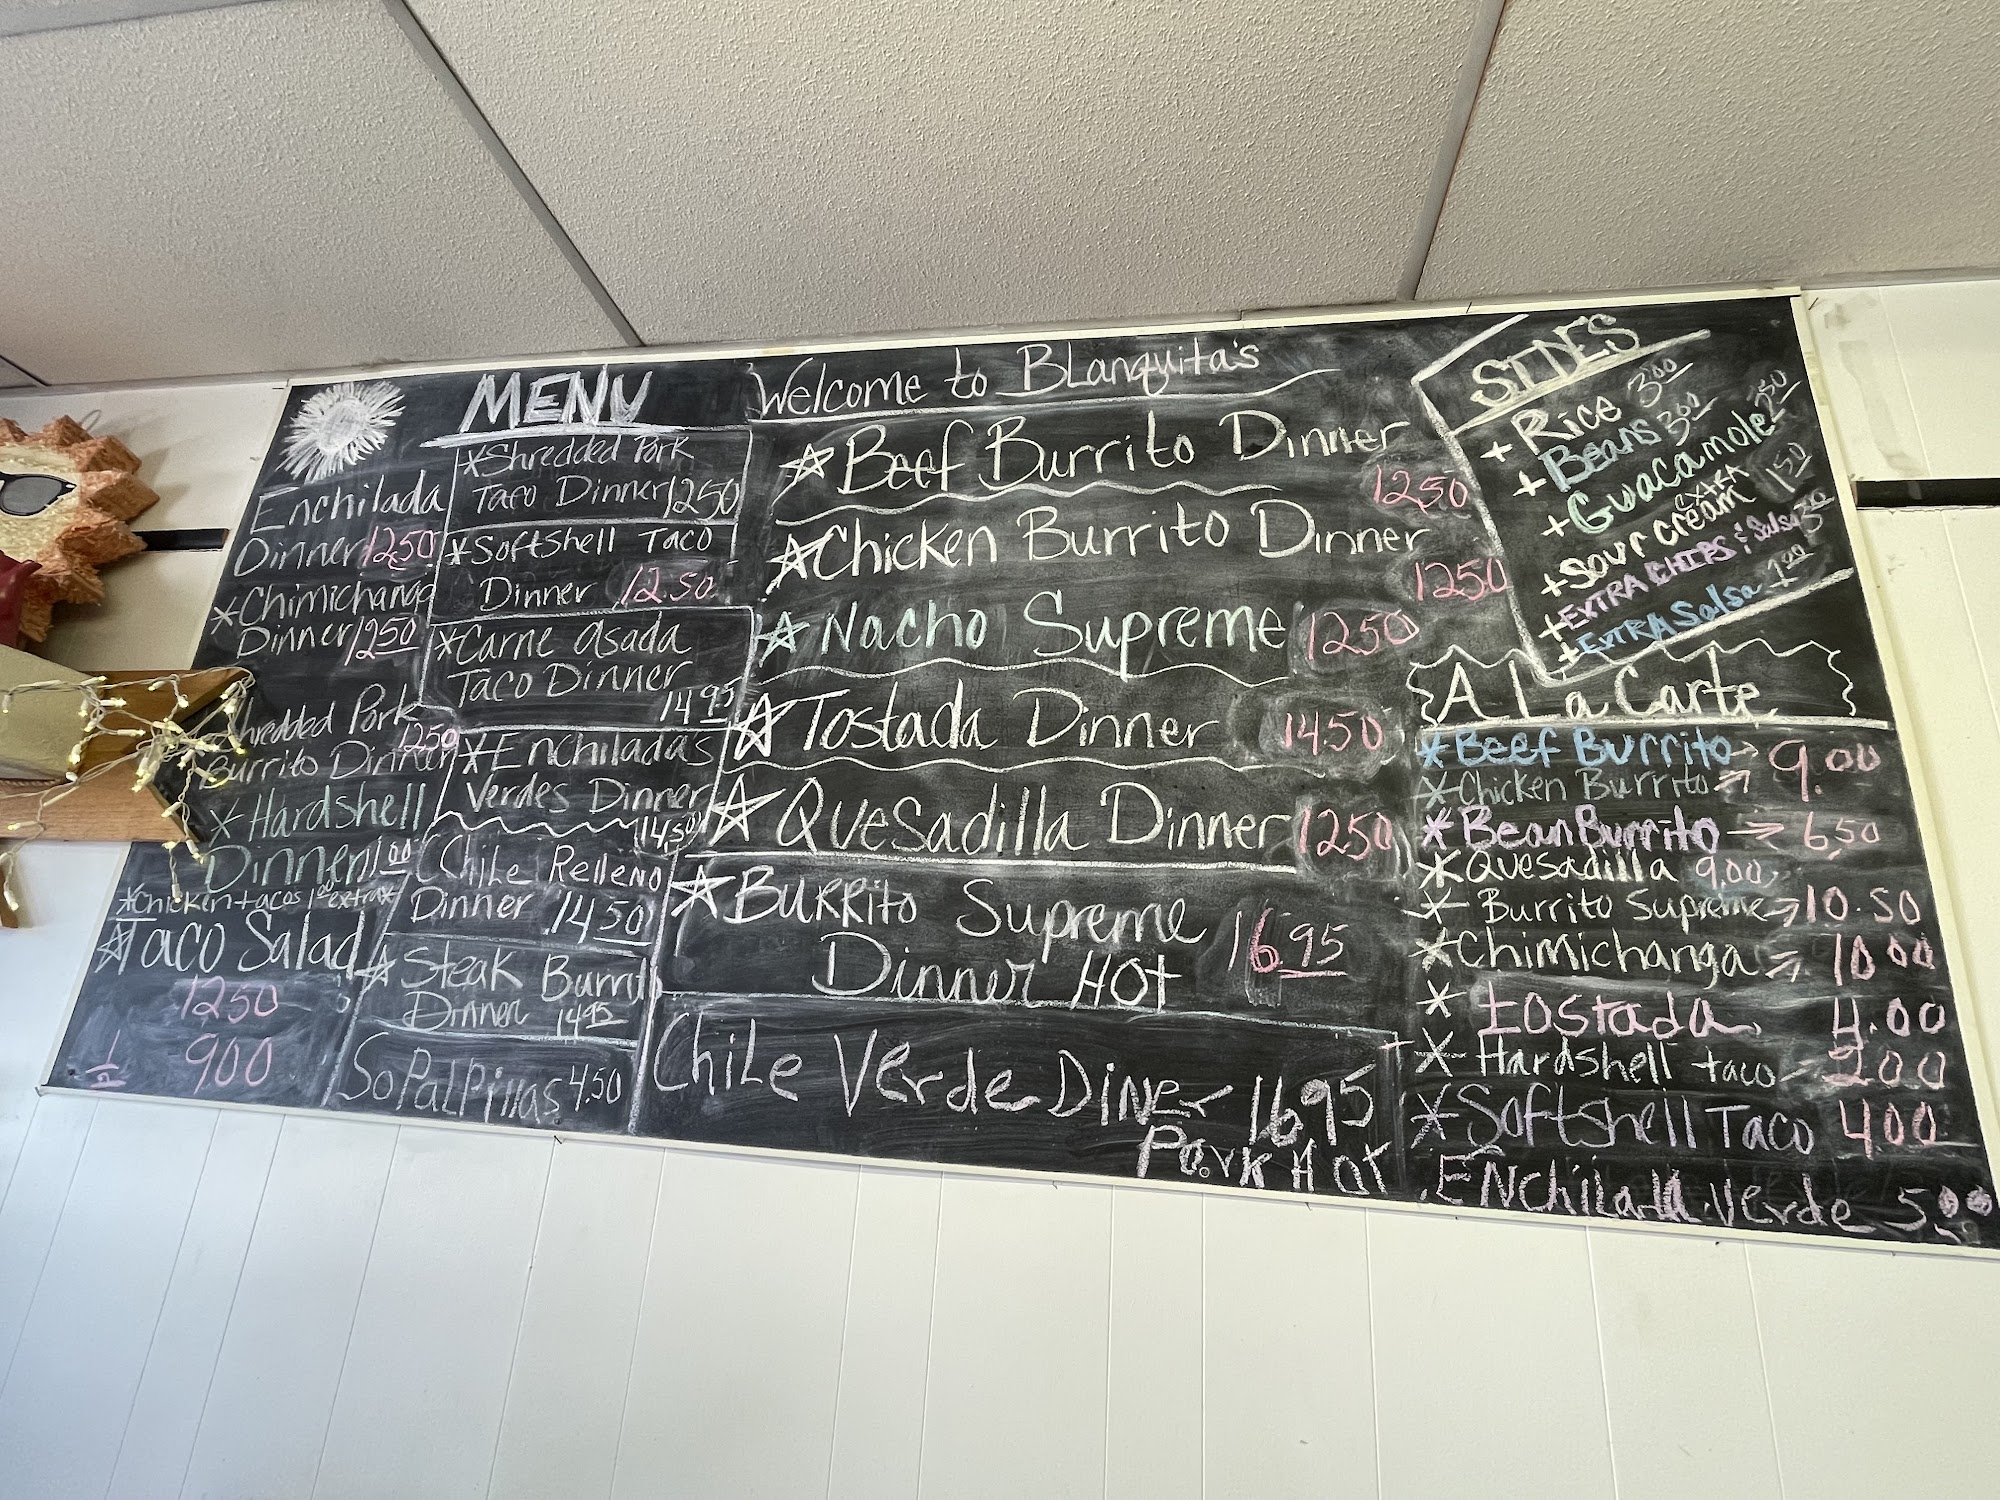 MENU
Enchilada
Dinner 1250
*Chimichanga
Dinner 1250
Shredded Pork
Burrito Dinner 1250
*Hardshell
Dinner
*Chicken tacos 1⁰⁰ extra*
☆Taco Salad
1250
1/2 900
*Shredded Pork
Taco Dinner 1250
*Softshell Taco
Dinner 12.50
*Carne asada
Taco Dinner
14.95
*Enchiladas
Verdes Dinner
14.50
Chile Relleno
Dinner 14.50
☆Steak Burrit
Dinner 14.95
SoPaiPillas 4.50
Welcome to BLanquita's
☆Beef Burrito Dinner
1250
☆Chicken Burrito Dinner
1250
☆Nacho Supreme 1250
☆Tostada Dinner 1450
☆Quesadilla Dinner 1250
☆Burrito Supreme
Dinner Hot 16.95
Chile Verde Diner 1695
Pork Hot
SIDES
+Rice 3⁰⁰
+Beans 3⁰⁰
+Guacamole 2⁵⁰
+Sour Cream extra 1⁵⁰
+EXTRA CHIPS & Salsa 3⁰⁰
+EXTRA Salsa 1⁰⁰
A La Carte
*Beef Burrito → 9.00
*Chicken Burrito →
*Bean Burrito → 6.50
*Quesadilla 9.00
*Burrito Supreme → 10.50
*Chimichanga → 10.00
*tostada 4.00
*Hardshell taco - 2.00
*Softshell Taco 4.00
ENchilada Verde 5.00